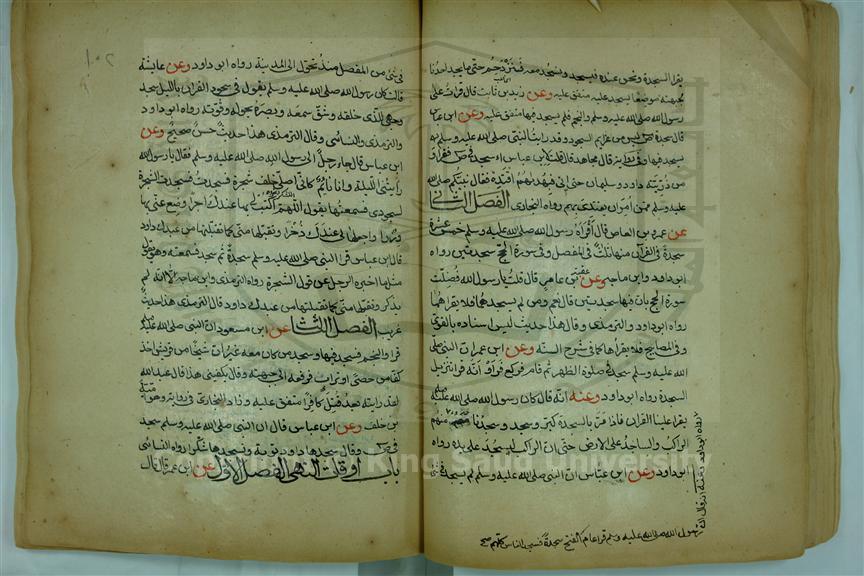 يقرأ السجدة ونحن عنده فيسجد ونسجد معه فنزدحم حتى ما يجد احدنا
لجبهته موضعا يسجد عليه متفق عليه وعن زيد بن ثابت قال قرأت على
رسول الله صلى الله عليه وسلم والنجم فلم يسجد فيها متفق عليه وعن ابن عباس
قال سجدة ص ليس من عزايم السجود وقد رأيت النبي صلى الله عليه وسلم
يسجد فيها وفي رواية قال مجاهد قلت لابن عباس أاسجد في ص فقرأ و
من ذريته داود وسليمان حتى اتى فبهديهم اقتده فقال نبيكم صلى الله
عليه وسلم ممن امر ان يقتدى بهم رواه البخاري الفصل الثاني
عن عمرو بن العاص قال أقرأه رسول الله صلى الله عليه وسلم خمس عشرة
سجدة في القرآن منها ثلث في المفصل وفي سورة الحج سجدتين رواه
ابو داود وابن ماجه وعن عقبة بن عامر قال قلت يا رسول الله فضلت
سورة الحج بان فيها سجدتين قال نعم ومن لم يسجدهما فلا يقرأهما
رواه ابو داود والترمذي وقال هذا حديث ليس اسناده بالقوي
وفي المصابيح فلا يقرأها كما في شرح السنة وعن ابن عمر ان النبي صلى
الله عليه وسلم سجد في صلوة الظهر ثم قام فركع فرأوا انه قرأ تنزيل
السجدة رواه ابو داود وعنه انه قال كان رسول الله صلى الله عليه
يقرأ علينا القرآن فاذا مر بالسجدة كبر وسجد وسجدنا
منهم الراكب والساجد على الارض حتى ان الراكب ليسجد على يده رواه
ابو داود وعن ابن عباس ان النبي صلى الله عليه وسلم لم يسجد في
رواه ابو داود وعنه انه قال ان
رسول الله صلى الله عليه وسلم قرأ عام الفتح سجدة فسجد الناس كلهم صح
١٠٢
في شئ من المفصل منذ تحول الى المدينة رواه ابو داود وعن عايشة
قالت كان رسول الله صلى الله عليه وسلم يقول في سجود القرآن بالليل سجد
وجهي للذي خلقه وشق سمعه وبصره بحوله وقوته رواه ابو داود
والترمذي والنسائي وقال الترمذي هذا حديث حسن صحيح وعن
ابن عباس قال جاء رجل الى رسول الله صلى الله عليه وسلم فقال يا رسول الله
رأيتني الليلة وانا نايم كأني اصلي خلف شجرة فسجدت فسجدت الشجرة
لسجودي فسمعتها تقول اللهم اكتب لي بها عندك اجرا وضع عني بها
وزرا واجعلها لي عندك ذخرا وتقبلها مني كما تقبلتها من عبدك داود
قال ابن عباس فقرأ النبي صلى الله عليه وسلم سجدة ثم سجد فسمعته وهو يقول
مثل ما اخبره الرجل عن قول الشجرة رواه الترمذي وابن ماجه الا انه لم
يذكر وتقبلها مني كما تقبلتها من عبدك داود قال الترمذي هذا حديث
غريب الفصل الثالث عن ابن مسعود ان النبي صلى الله عليه
قرأ والنجم فسجد فيها وسجد من كان معه غير ان شيخا من قريش اخذ
كفا من حصى او تراب فرفعه الى جبهته وقال يكفيني هذا قال عبدالله
لقد رأيته بعد قتل كافرا متفق عليه وزاد البخاري في رواية وهو امية
بن خلف وعن ابن عباس قال ان النبي صلى الله عليه وسلم سجد
في ص وقال سجدها داود توبة ونسجدها شكرا رواه النسائي
باب اوقات النهي الفصل الاول عن ابن عمر قال قال
King Saud University